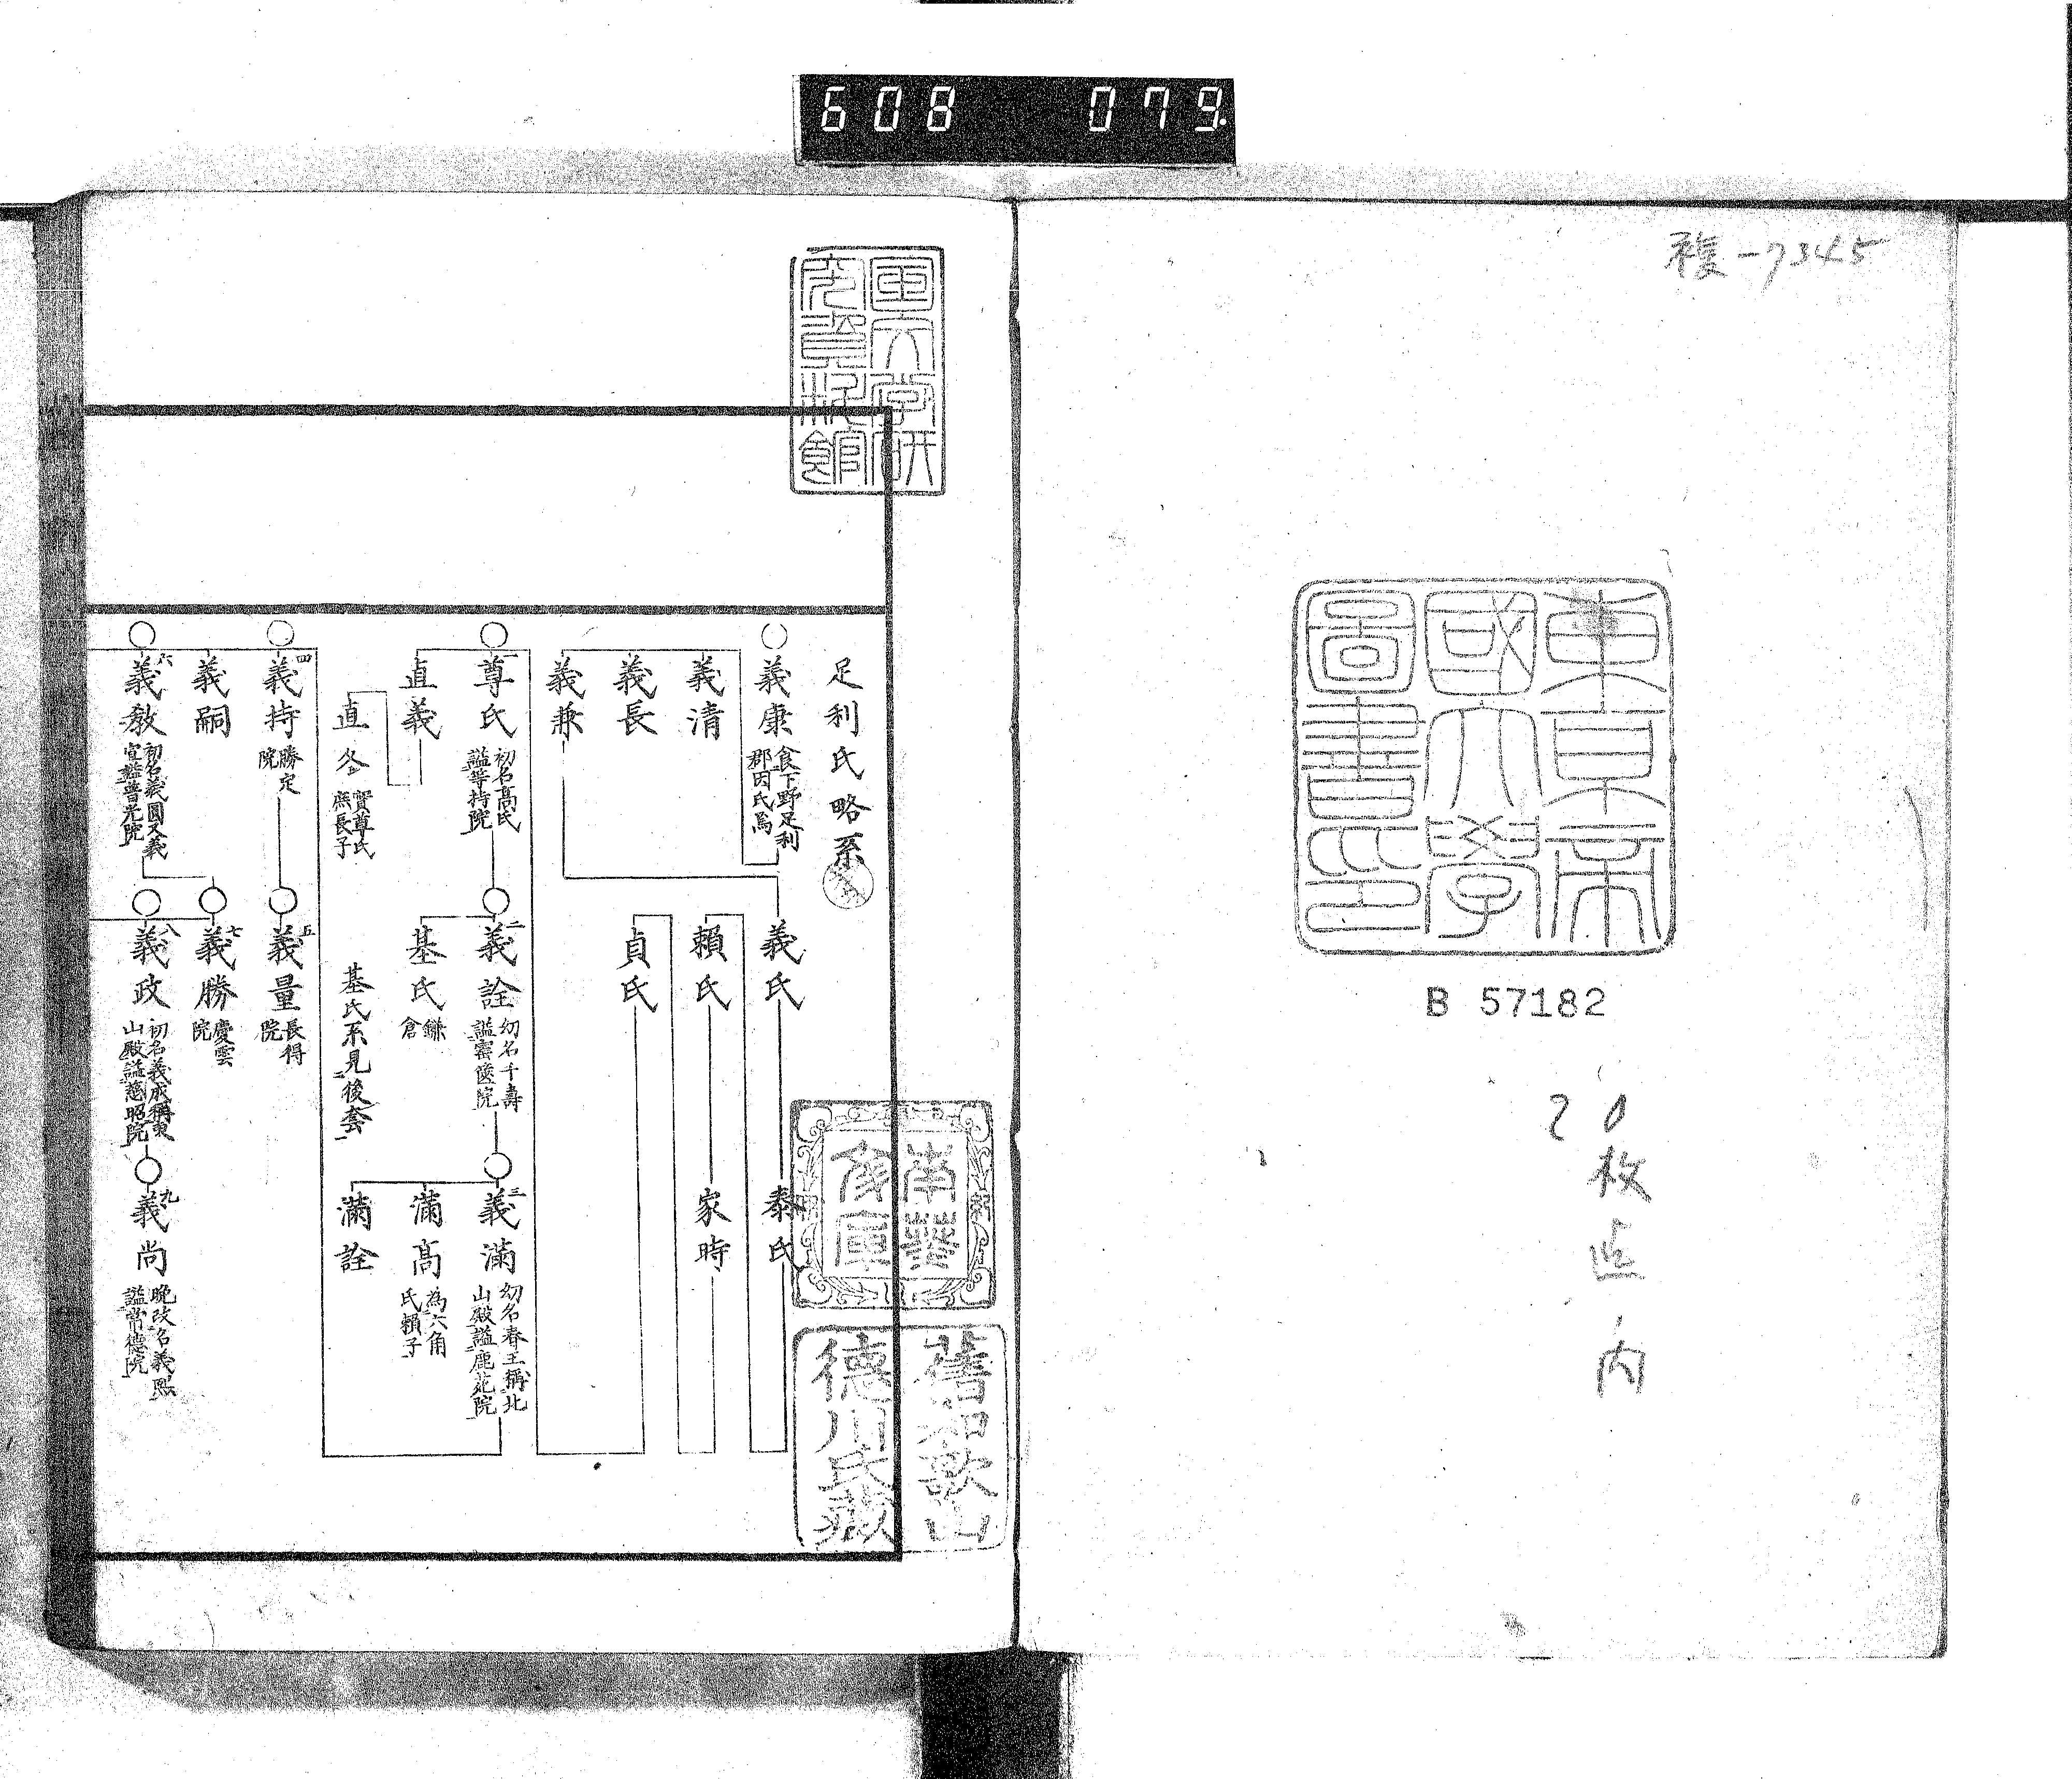 608 079
複-7345
東京帝
國大學
圖書印
B 57182
20
枚
内
國文学研
究資料館
南葵
文庫
舊和歌山
徳川氏蔵
足利氏略系
義康 食下野足利
郡因氏焉
義清
義長
義兼
義氏
泰氏
頼氏
家時
貞氏
一
尊氏 初名高氏
謚等持院
直義
直冬 實尊氏
庶長子
二
義詮 幼名千壽
謚寳篋院
基氏 鎌
倉
基氏系見後套
三
義滿 幼名春王稱北
山殿謚鹿苑院
滿高 為六角
氏賴子
滿詮
四
義持 勝定
院
五
義量 長得
院
義嗣
六
義教 初名義圓又義
宣謚普光院
七
義勝 慶雲
院
八
義政 初名義成稱東
山殿謚慈昭院
九
義尚 晩改名義熙
謚常德院